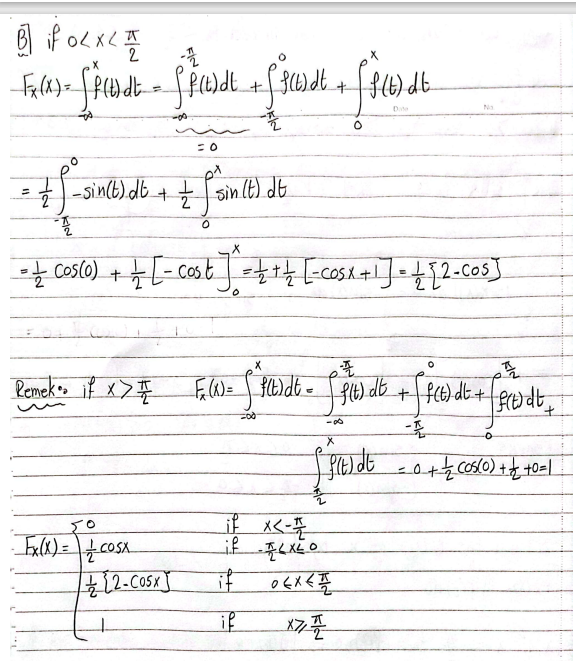 B] if 0<x<π/2
Fₓ(x) = ∫_{-∞}^{x} f(t)dt = ∫_{-∞}^{-π/2} f(t)dt + ∫_{-π/2}^{0} f(t)dt + ∫_{0}^{x} f(t) dt
Date No.
= 0
= 1/2 ∫_{-π/2}^{0} -sin(t) dt + 1/2 ∫_{0}^{x} sin(t) dt
= 1/2 cos(0) + 1/2 [-cost]_{0}^{x} = 1/2 + 1/2 [-cosx+1] = 1/2 [2-cos]
Remek: if x>π/2 Fₓ(x) = ∫_{-∞}^{x} f(t)dt = ∫_{-∞}^{-π/2} f(t)dt + ∫_{-π/2}^{0} f(t)dt + ∫_{0}^{π/2} f(t)dt +
∫_{π/2}^{x} f(t)dt = 0 + 1/2 cos(0) + 1/2 + 0 = 1
Fₓ(x) = { 0 if x<-π/2
1/2 cosx if -π/2≤x≤0
1/2 [2-cosx] if 0≤x≤π/2
1 if x≥π/2